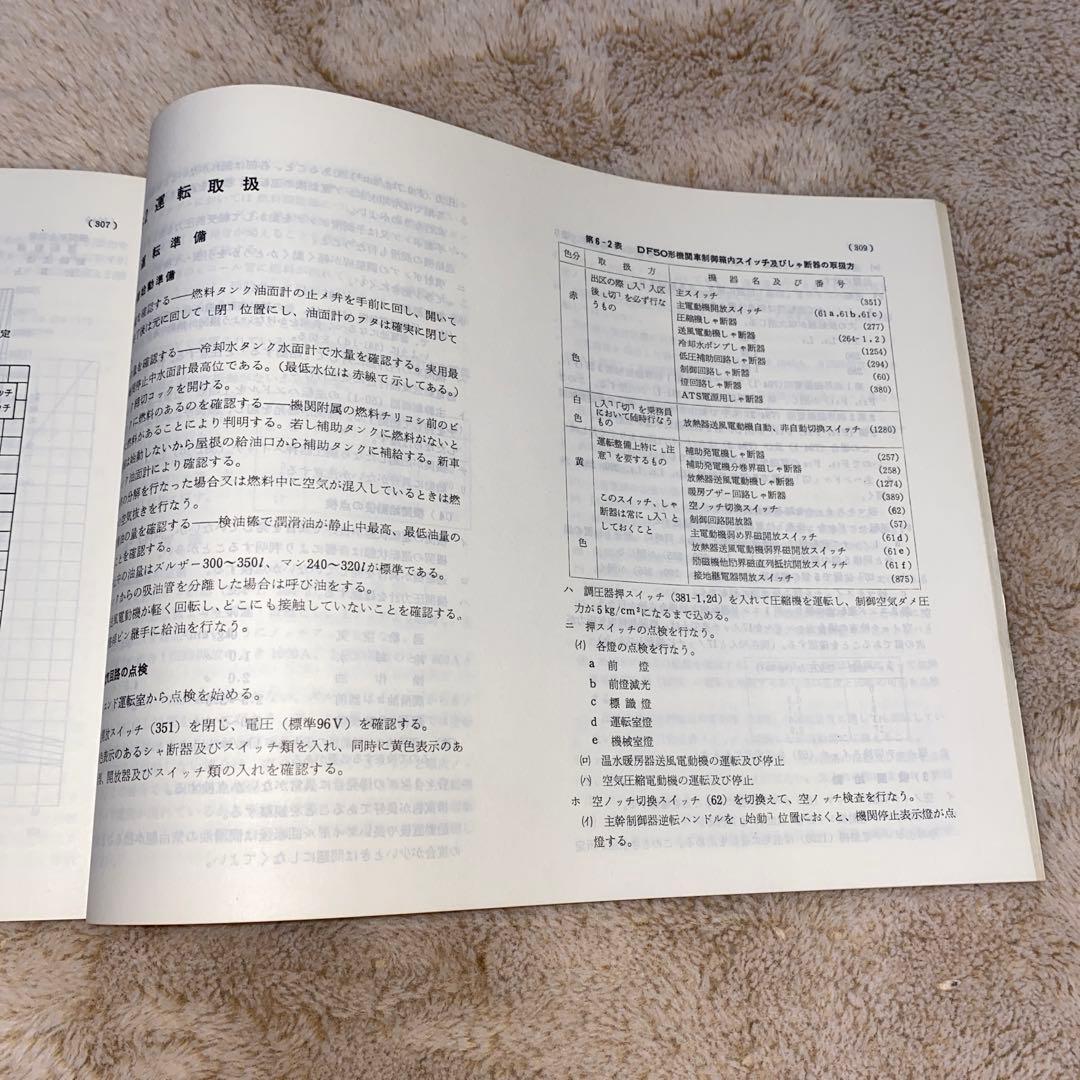 (307)
定
ッチ
ッチ
運転取扱
運転準備
始動準備
を確認する――燃料タンク油面計の止メ弁を手前に回し、開いて
後は元に回して「閉」位置にし、油面計のフタは確実に閉じて
量を確認する――冷却水タンク水面計で水量を確認する。実用最
停止中水面計最高位である。(最低水位は赤線で示してある。)
締切コックを開ける。
に燃料のあるのを確認する――機関附属の燃料チリコシ前のビ
燃料があることにより判明する。若し補助タンクに燃料がないと
は始動しないから屋根の給油口から補助タンクに補給する。新車
油面計により確認する。
の分解を行なった場合又は燃料中に空気が混入しているときは燃
空気抜きを行なう。
油の量を確認する――検油棒で潤滑油が静止中最高、最低油量の
とを確認する。
の油量はズルザー300〜350l、マン240〜320lが標準である。
クからの吸油管を分離した場合は呼び油をする。
送風電動機が軽く回転し、どこにも接触していないことを確認する。
ピン継手に給油を行なう。
回路の点検
エンド運転室から点検を始める。
放スイッチ(351)を閉じ、電圧(標準96V)を確認する。
色表示のあるシャ断器及びスイッチ類を入れ、同時に黄色表示のあ
開放器及びスイッチ類の入れを確認する。
(309)
第6-2表 DF50形機関車制御箱内スイッチ及びしゃ断器の取扱方
色分 取扱方 機器名及び番号
赤色 出区の際「入」入区
後「切」を必ず行な
うもの
主スイッチ (351)
主電動機開放スイッチ (61a,61b,61c)
圧縮機しゃ断器 (277)
送風電動機しゃ断器 (264-1,2)
冷却水ポンプしゃ断器 (1254)
低圧補助回路しゃ断器 (294)
制御回路しゃ断器 (60)
燈回路しゃ断器 (380)
ATS電源用しゃ断器
白色 「入」「切」を乗務員
において随時行なう
もの
放熱器送風電動機自動、非自動切換スイッチ (1280)
黄色 運転整備上特に「注
意」を要するもの
このスイッチ、しゃ
断器は常に「入」と
しておくこと
補助発電機しゃ断器 (257)
補助発電機分巻界磁しゃ断器 (258)
放熱器送風電動機しゃ断器 (1274)
暖房ブザー回路しゃ断器 (389)
空ノッチ切換スイッチ (62)
制御回路開放器 (57)
主電動機弱め界磁開放スイッチ (61d)
放熱器送風電動機弱界磁開放スイッチ (61e)
励磁機他励界磁直列抵抗開放スイッチ (61f)
接地継電器開放スイッチ (875)
ハ 調圧器押スイッチ(381-1,2d)を入れて圧縮機を運転し、制御空気ダメ圧
力が5kg/cm²になるまで込める。
ニ 押スイッチの点検を行なう。
(イ) 各燈の点検を行なう。
a 前燈
b 前燈減光
c 標識燈
d 運転室燈
e 機械室燈
(ロ) 温水暖房器送風電動機の運転及び停止
(ハ) 空気圧縮電動機の運転及び停止
ホ 空ノッチ切換スイッチ(62)を切換えて、空ノッチ検査を行なう。
(イ) 主幹制御器逆転ハンドルを「始動」位置におくと、機関停止表示燈が点
燈する。